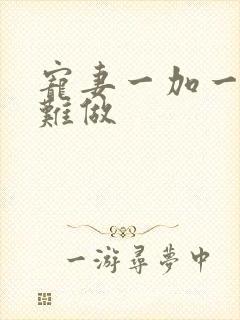 寵妻一加一
難做
一游尋夢中